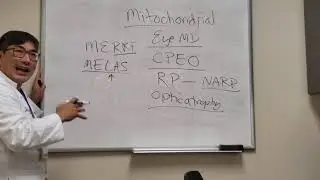 Mitochondrial
Eye MD
MERRF
MELAS
CPEO
RP — NARP
Optic atrophy